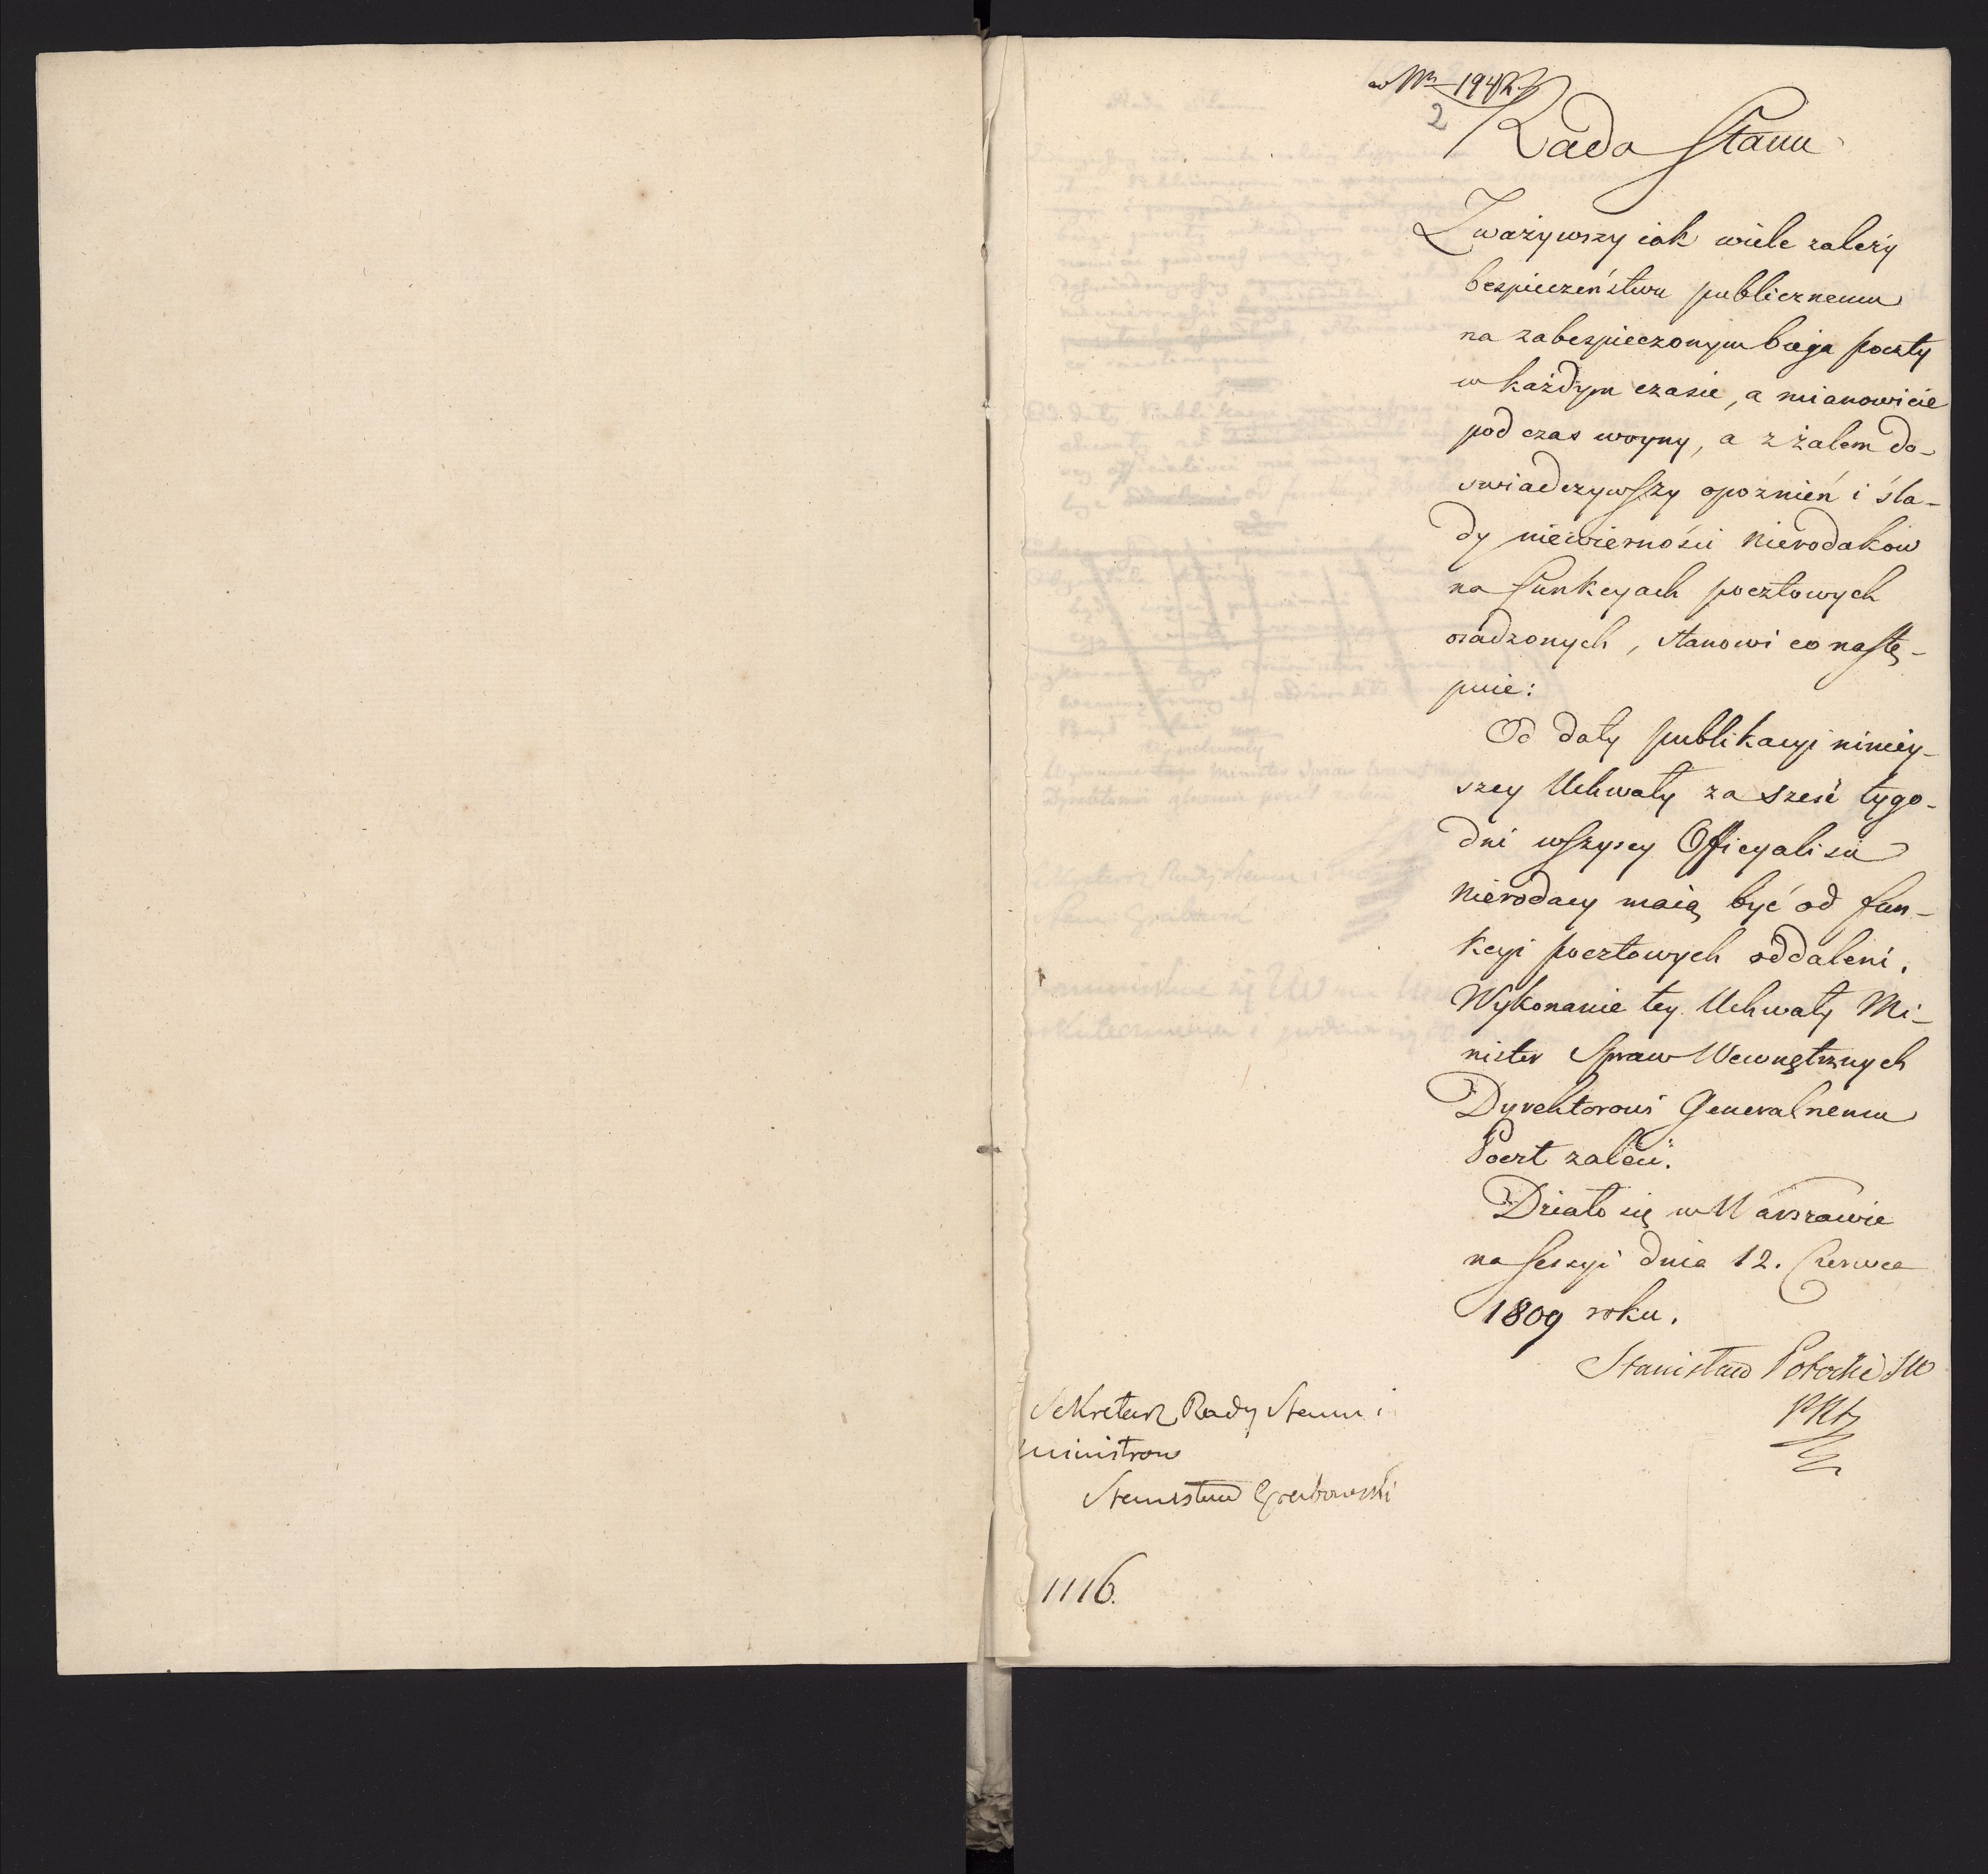 w Nr 1942
2
Rada Stanu
Zważywszy iak wiele zależy
bespieczeństwu publicznemu
na zabespieczonym biegu poczty
w każdym czasie, a mianowicie
podczas woyny, a z żalem do-
swiadczywszy opoznień i śla-
dy niewierności nierodakow
na funkcyach pocztowych
osadzonych, stanowi co nastę-
puie:
Od daty publikacyi niniey-
szey Uchwały za sześć tygo-
dni wszyscy Officyalisci
nierodacy maią być od fun-
kcyi pocztowych oddaleni.
Wykonanie tey Uchwały Mi-
nister Spraw Wewnętrznych
Dyrektorowi Generalnemu
Poczt zaleci.
Działo się w Warszawie
na Sessyi dnia 12. Czerwca
1809 roku.
Stanisław Potocki SW
Sekretarz Rady Stanu i
Ministrow
Stanisław Grabowski
1116.